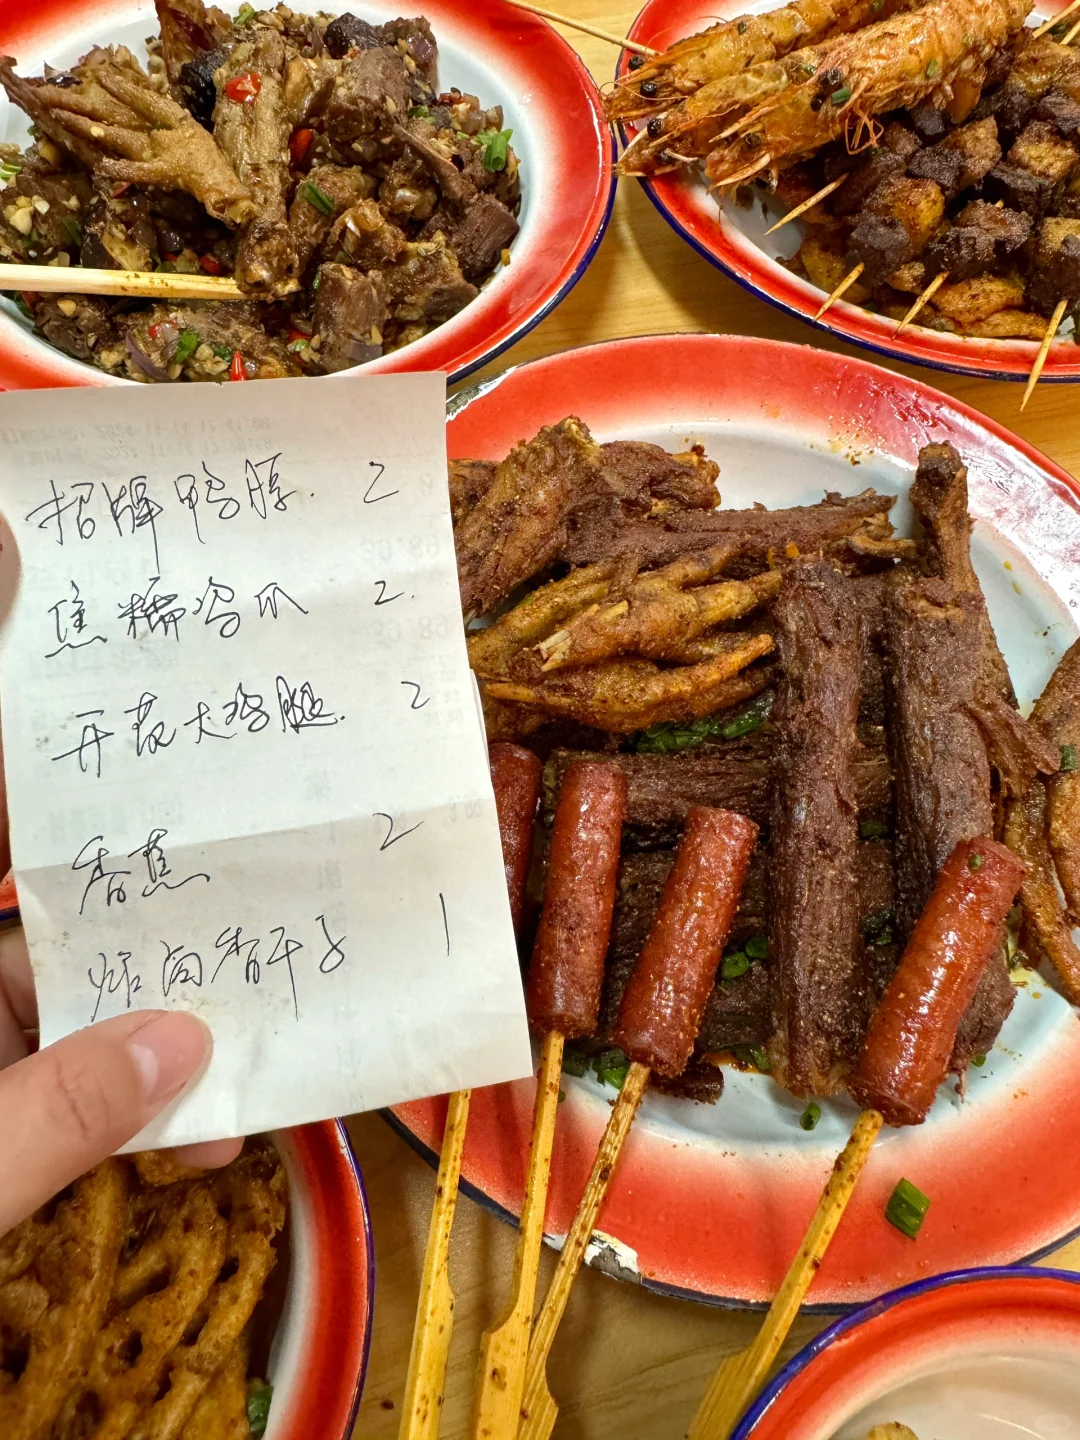 招牌鸭脖. 2
焦糯鸡爪 2.
开花大鸡腿. 2
香蕉 2
炸卤香干子 1